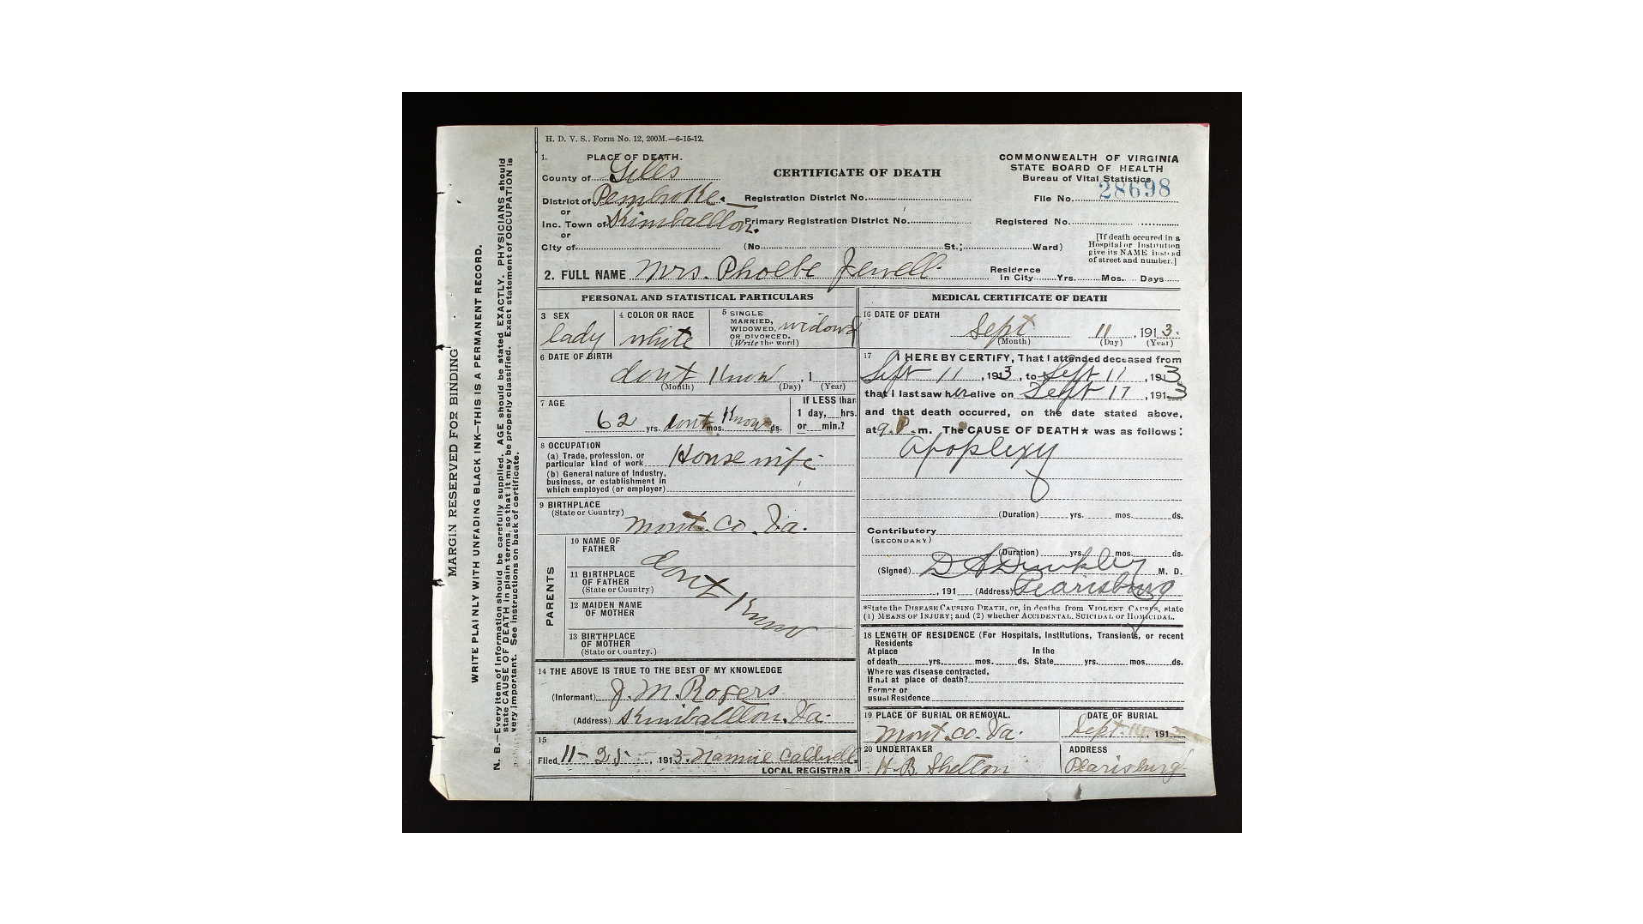 H. D. V. S., Form No. 12, 200M.—6-15-12.
MARGIN RESERVED FOR BINDING
WRITE PLAINLY WITH UNFADING BLACK INK—THIS IS A PERMANENT RECORD.
N. B.—Every item of information should be carefully supplied. AGE should be stated EXACTLY. PHYSICIANS should
state CAUSE OF DEATH in plain terms, so that it may be properly classified. Exact statement of OCCUPATION is
very important. See instructions on back of certificate.
1. PLACE OF DEATH.
County of Giles
District of Pembroke
or
Inc. Town of Kimballton.
or
City of
CERTIFICATE OF DEATH
Registration District No.
Primary Registration District No.
(No. St.; Ward)
COMMONWEALTH OF VIRGINIA
STATE BOARD OF HEALTH
Bureau of Vital Statistics
File No. 28698
Registered No.
[If death occured in a
Hospital or Institution
give its NAME instead
of street and number.]
2. FULL NAME Mrs. Phoebe Jewell
Residence
In City Yrs. Mos. Days
PERSONAL AND STATISTICAL PARTICULARS
3 SEX
lady
4 COLOR OR RACE
white
5 SINGLE
MARRIED,
WIDOWED,
OR DIVORCED.
(Write the word)
widow
6 DATE OF BIRTH
dont Know , 1
(Month) (Day) (Year)
7 AGE
62 yrs. dont mos. Know ds.
If LESS than
1 day, hrs.
or min.?
8 OCCUPATION
(a) Trade, profession, or
particular kind of work House wife
(b) General nature of Industry,
business, or establishment in
which employed (or employer)
9 BIRTHPLACE
(State or Country) Mont. Co. Va.
PARENTS
10 NAME OF
FATHER
11 BIRTHPLACE
OF FATHER
(State or Country)
12 MAIDEN NAME
OF MOTHER
13 BIRTHPLACE
OF MOTHER
(State or Country.)
Dont Know
14 THE ABOVE IS TRUE TO THE BEST OF MY KNOWLEDGE
(Informant) J. M. Rogers
(Address) Kimballton. Va.
15
Filed 11- 1913. Nannie Caldwell
LOCAL REGISTRAR
MEDICAL CERTIFICATE OF DEATH
16 DATE OF DEATH
Sept 11 , 1913.
(Month) (Day) (Year)
17 I HEREBY CERTIFY, That I attended deceased from
Sept 11 , 1913, to Sept 11 , 1913
that I last saw her alive on Sept 17 , 1913
and that death occurred, on the date stated above,
at 9. P. m. The CAUSE OF DEATH★ was as follows:
Apoplexy
(Duration) yrs. mos. ds.
Contributory
(SECONDARY)
(Duration) yrs. mos. ds.
(Signed) M. D.
, 191 (Address) Pearisburg
*State the DISEASE CAUSING DEATH, or, in deaths from VIOLENT CAUSES, state
(1) MEANS OF INJURY; and (2) whether ACCIDENTAL, SUICIDAL or HOMICIDAL.
18 LENGTH OF RESIDENCE (For Hospitals, Institutions, Transients, or recent
Residents
At place In the
of death yrs. mos. ds. State yrs. mos. ds.
Where was disease contracted,
If not at place of death?
Former or
usual Residence
19 PLACE OF BURIAL OR REMOVAL.
Mont. Co. Va.
DATE OF BURIAL
Sept. , 191
20 UNDERTAKER
H. B. Shelton
ADDRESS
Pearisburg